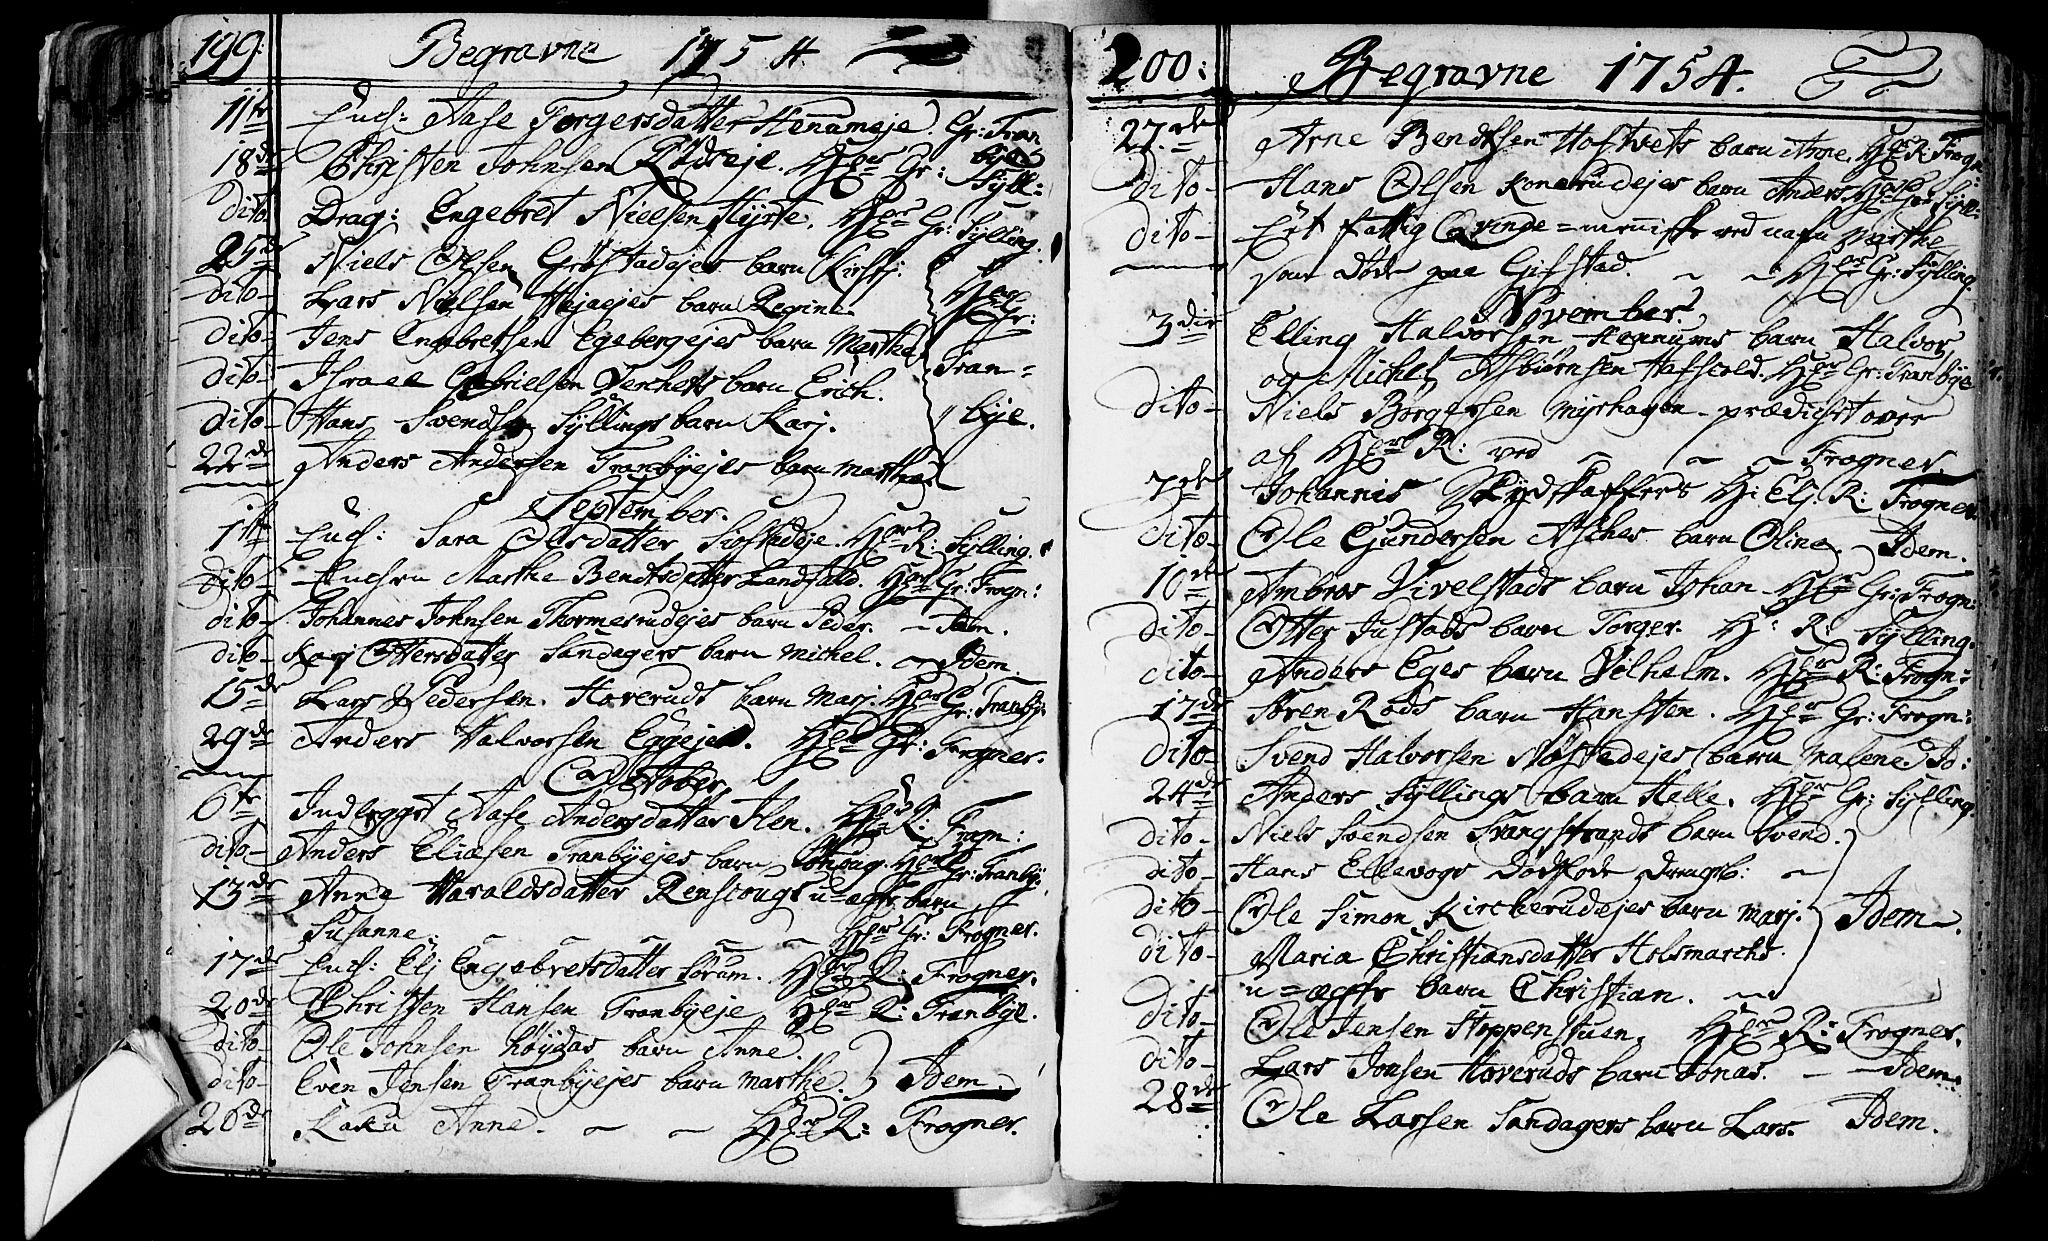 199: Begravne 1754.
11te Ench: Aase Torgersdatter Hennumeje. Gr: Tran
18de Christen Johnsen Rødseje. Hr Gr: Sÿll: bye
dito Drag: Engebret Nielsen Hÿrte. Hr Gr: Sÿlling.
25de Niels Olsen Grøstadejes barn Kirstj.
dito- Lars Nielsen Hejaejes barn Regine. Hr Gr:
dito- Jens Engebretsen Egebergejes barn Marthe
dito- Jsrael Gabrielsen Verchets barn Erich. Tran=
dito- Hans Svendsen Sÿllings barn Karj. bÿe.
22de Anders Andersen Tranbÿejes barn Marthe.
September.
1te Ench: Sara Olsdatter Giftstadeje. Hr R: Sÿlling.
dito- Enchen Marthe Bendtsdatter Landfald. Hr Gr: Frogn:
dito- Johannes Johnsen Thormerudejes barn Peder. - Idem.
dito- Karj Ottersdatter Sandagers barn Michel. - Idem.
15de Lars Pedersen Hoverudt barn Marj. Hr Gr: Tranbÿe
29de Anders Halvorsen Eggejes. Hr Gr: Frogner.
October.
6te Indlagget Aase Andersdatter Hen. Hr R: Frogn:
dito- Anders Eliasen Tranbÿejes barn Hr Gr: Tranbÿ:
13de Anne Haraldsdatter Renscougs u-ægte barn
Susanne. - - - Hr Gr: Frogner.
17de Ench: Elj Engebretsdatter Sørum. Hr R: Frogner.
20de Christen Hansen Tranbÿeje Hr R: Tranbÿe.
dito- Ole Johnsen Høÿdas barn Anne.
dito- Even Jensen Tranbÿejes barn Marthe. Idem.
26de Anne. - - Hr R: Frogner.
200: Begravne 1754.
27de Arne Bendtsen Hostvets barn Anne. Hr R: Frogn:
dito- Hans Olsen Konerudejes barn Anders Hr Gr: Sÿll:
dito- Eet fattig Qvinde=menniske ved nafn Marthe
som døde paa Gifstad. - - Hr Gr: Sÿlling.
November.
3die Elling Halvorsen Hennums barn Halvor
og Michel Asbiørnsen Hafscold. Hr Gr: Tranbÿe
dito- Niels Børgersen Myrhagen - prædichet over
af Hr R: ved - - - Frogner.
7de Johannis Skÿdskaffers H: Elj. R: Frogner.
dito- Ole Gundersen Aschers barn Oline. - Idem.
10de Ambros Vivelstads barn Johan Hr Gr: Frogn:
dito- Otter Justads barn Torger. H: R: Sÿlling.
dito- Anders Eges barn Vilhelm. Hr R: Frogn:
17de Søren Røds barn Hansten. Hr Gr: Frogn:
dito- Svend Halvorsen Nøstedejes barn Malene Id:
24de Anders Sÿllings barn Helle. Hr Gr: Sÿlling.
dito- Niels Svendsen Svangstrands barn Svend.
dito- Hans Ellevogs Dødføde Drengb: -
dito- Ole Simon Kirckerudejes barn Marj. Idem.
dito- Maria Christiansdatter Holsmarchs
u=ægte barn Christian. -
dito- Ole Jensen Stoppenstuen. Hr R: Frogner.
dito- Lars Jonsen Hoveruds barn Jonas. - - Idem:
28de Ole Larsen Sandagers barn Lars. Idem.